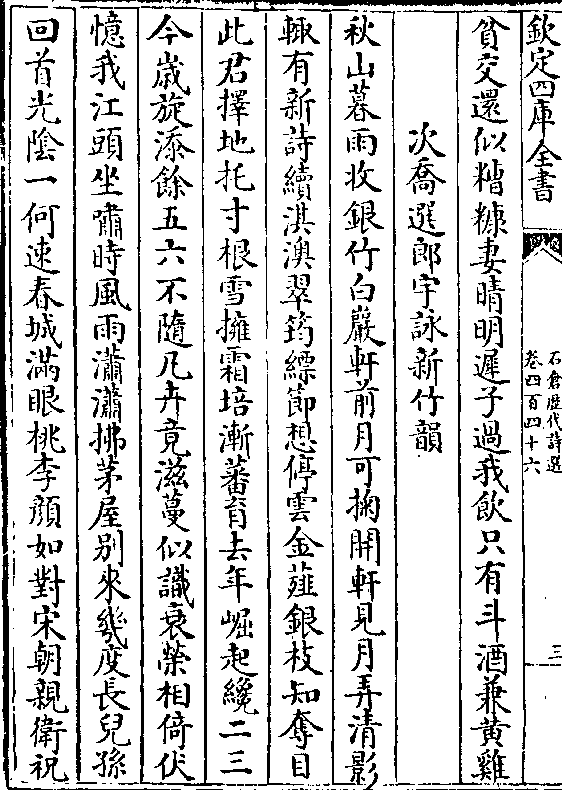 欽定四庫全書
石倉歴代詩選
卷四百四十六
三
貧交還似糟糠妻晴明遲子過我飲只有斗酒兼黄雞
次喬選郎宇詠新竹韻
秋山暮雨收銀竹白巖軒前月可掬開軒見月弄清影
輙有新詩續淇澳翠筠縹節想停雲金薤銀枝知奪目
此君擇地托寸根雪擁霜培漸蕃育去年崛起纔二三
今歳旋添餘五六不隨凡卉競滋蔓似識衰榮相倚伏
憶我江頭坐嘯時風雨瀟瀟拂茅屋别來幾度長兒孫
回首光陰一何速春城滿眼桃李顔如對宋朝親衛祝